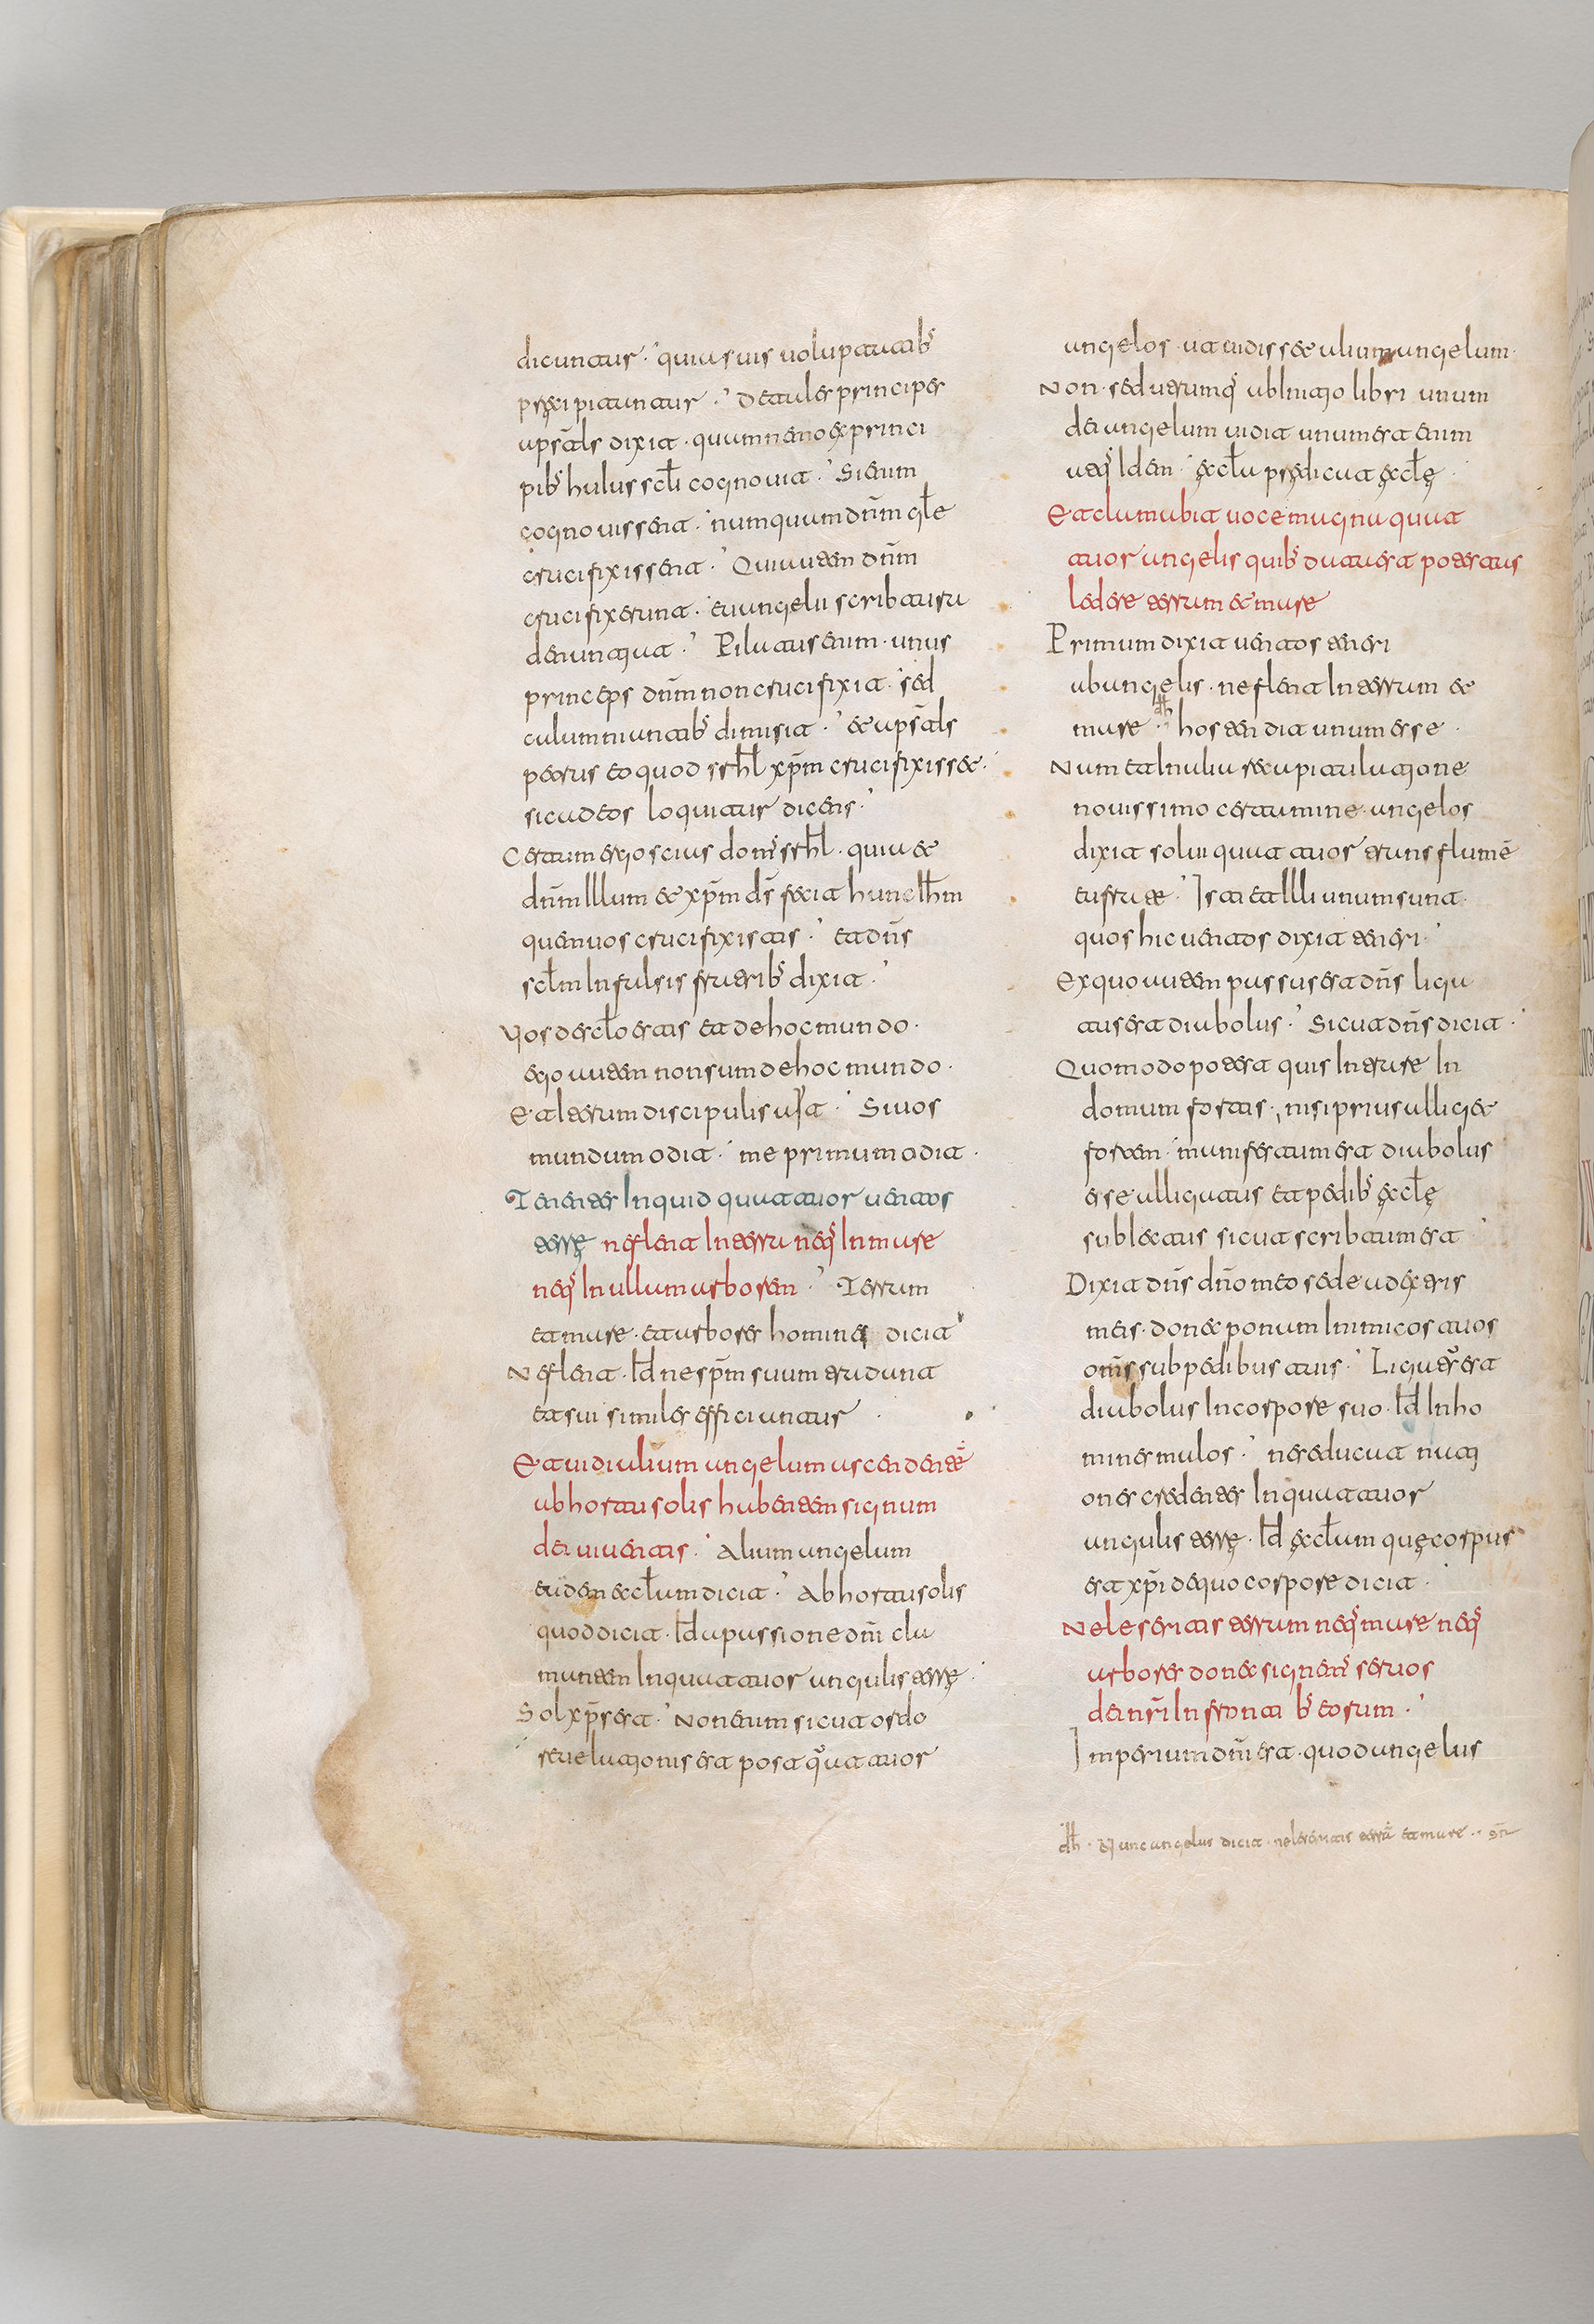 dicuntur · quia suis uoluptatib
precipitantur · De tales principes
apsls dixit · quum nemo ex princi
pib huius scli cognouit · Si enim
cognouissent · numquam dnm gle
crucifixissent · Qui autem dnm
crucifixerunt · euangelii scribturu
denuntiat · Pilatus enim · unus
princeps dnm non crucifixit · sed
calumniantib dimisit · et apsls
petrus eo quod srhl xpm crucifixisset ·
sicud eos loquitur dicens ·
Certum ergo scias dom srhl · quia et
dnm illum et xpm ds fecit hunc ihm
quem uos crucifixistis · Et dns
sclm in falsis fratrib dixit ·
Vos de scło estis et de hoc mundo ·
ego autem non sum de hoc mundo ·
Et iterum discipulis ait · Si uos
mundum odit · me primum odit ·
Tenentes inquid quattuor uentos
terrę ne flent in terra neq in mare
neq in ullum arborem · Terrum
et mare · et arbores homines dicit
Ne flent · Id ne spm suum tradant
et sui similes efficiantur ·
Et uidi alium angelum ascendentē
ab hortu solis habentem signum
dei uiuentis · Alium angelum
eadem ecclum dicit · Ab hortu solis
quod dicit · Id a passione dni cla
mantem in quattuor angulis terrę ·
Sol xps est · Non enim sicut ordo
reuelationis est post quattuor
angelos · ut uidisset alium angelum ·
Non · sed utrumq ab initio libri unum
dei angelum uidit unum est enim
utq Idem · ęcclu prędicat ęcclę ·
Et clamabit uoce magna quat
tuor angelis quib datu est potestas
ledere terrum et mare
Primum dixit uentos teneri
ab angelis · ne flent in terrum et
mare · hos tendit unum esse ·
Num et in aliu recapitulatione
nouissimo certamine · angelos
dixit solui quattuor trans flumē
eufrate · Isti et illi unum sunt ·
quos hic uentos dixit teneri ·
Ex quo autem passus est dns liga
tus est diabolus · Sicut dns dicit ·
Quomodo potest quis intrare in
domum fortis · nisi prius alliget
fortem · manifestum est diabolus
esse alligatus et pedib ęcclę
subiectus sicut scribtum est
Dixit dns dno meo sede ad exteris
meis · donec ponum inimicos tuos
omns sub pedibus tuis · Ligatus est
diabolus In corpore suo · Id In ho
mines malos · ne seducat nati
ones credentes In quattuor
angulis terrę · Id ęcclum quę corpus
est xpi de quo corpore dicit ·
Ne leseritis terrum neq mare neq
arbores donec signem seruos
dei nri In frontib eorum ·
Imperium dni est · quod angelus
dh · Nunc angelus dicit · ne leseritis terrā et mare · · sr